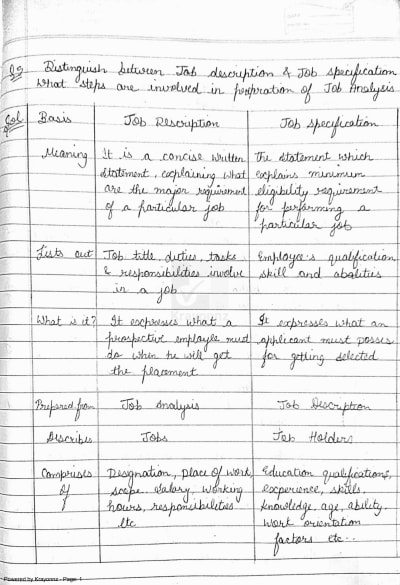 Q2 Distinguish between Job description & Job specification
What steps are involved in prepration of Job Analysis
Sol Basis Job Description Job specification
Meaning It is a concise written The statement which
statement, explaining what explains minimum
are the major requirement eligibility requirement
of a particular job for performing a
particular job
Lists out Job title, duties, tasks Employee's qualification
& responsibilities involve skill and abalities
in a job
What is it? It expresses what a It expresses what an
prospective employee must applicant must posses
do when he will get for getting selected
the placement
Prepared from Job Analysis Job Description
Describes Jobs Job Holders
Comprises Designation, place of work Education qualifications,
of scope. salary, working experience, skills
hours, responsibilities knowledge, age, ability.
etc Work orientation
factors etc..
Powered by Krayonnz - Page: 1